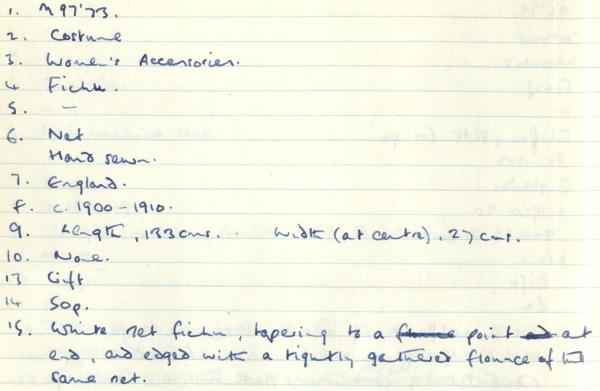 1. M97'73.
2. Costume
3. Women's Accessories.
4 Fichu.
5. –
6. Net
Hand sewn.
7. England.
8. c. 1900–1910.
9. Length, 133cms. Width (at centre). 27 cms.
10. None.
13 Gift
14 Sop.
15. White net fichu, tapering to a flounce point and at
end, and edged with a tightly gathered flounce of the
same net.